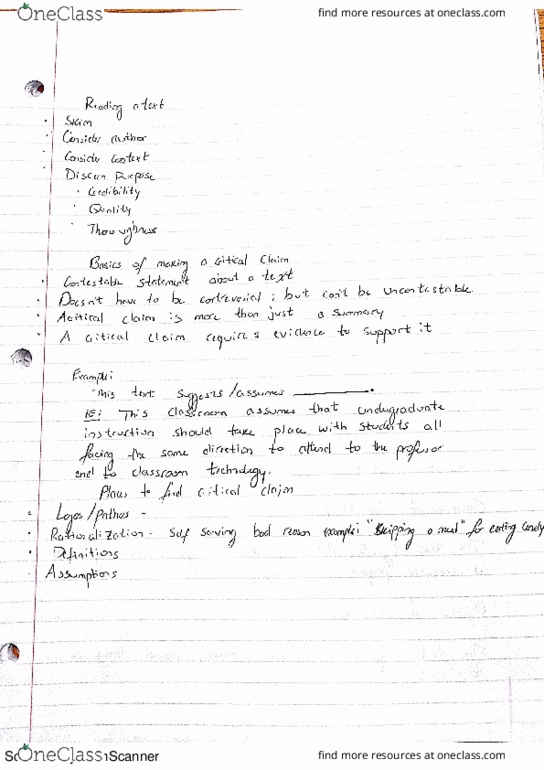 OneClass
find more resources at oneclass.com
Reading a text
• Skim
• Consider Author
• Consider Context
• Discern Purpose
• Credibility
• Quality
• Thoroughness
Basics of making a critical claim
• Contestable statement about a text
• Doesn't have to be controversial; but can't be uncontestable
• A critical claim is more than just a summary
• A critical claim requires evidence to support it
Example:
"This text suggests/assumes ________.
IE: This classroom assumes that undergraduate
instruction should take place with students all
facing the same direction to attend to the professor
and to classroom technology.
Places to find critical claim
• Logos/pathos -
• Rationalization - Self serving bad reason example: "Skipping a meal" for eating candy
• Definitions
• Assumptions
OneClass
Scanner
find more resources at oneclass.com